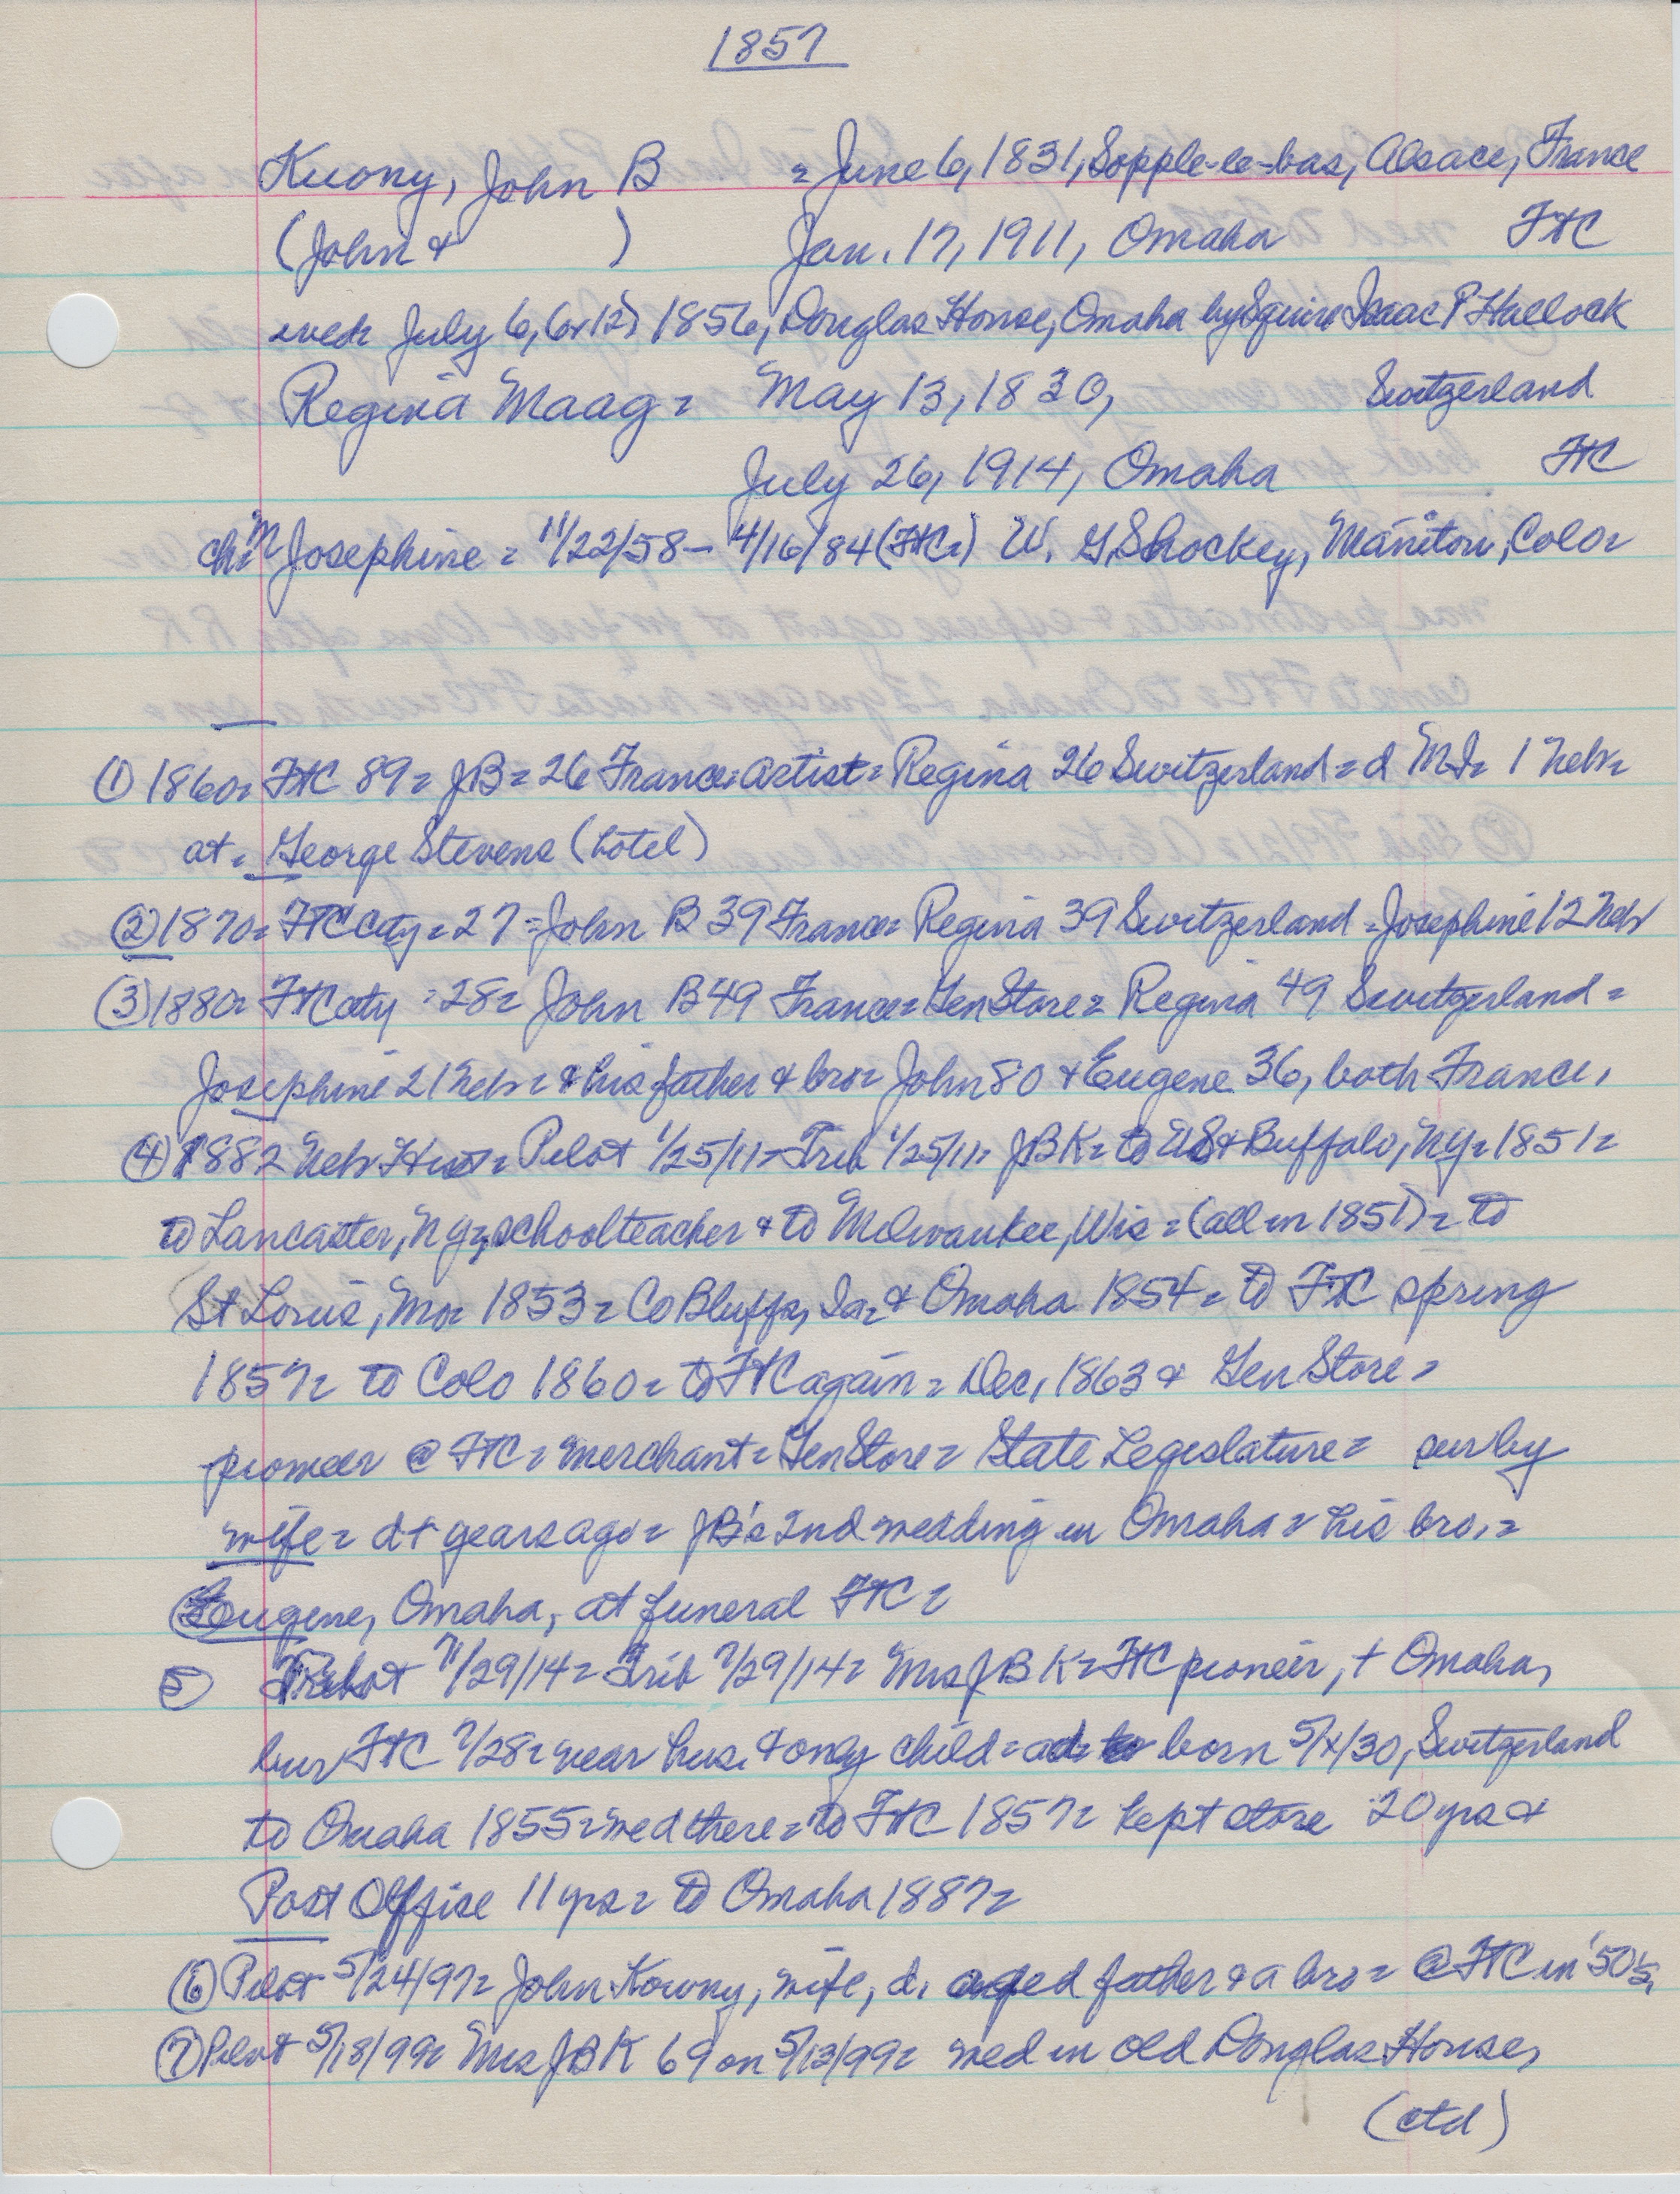 1857
Kuony, John B = June 6, 1831, Sopple-le-bas, Alsace, France
(John & ) Jan. 17, 1911, Omaha FtC
wed= July 6, (or 12) 1856, Douglas House, Omaha by Squire Isaac P Hallock
Regina Maag = May 13, 1830, Switzerland
July 26, 1914, Omaha FtC
ch= Josephine = 11/22/58 - 4/16/84 (FtC=) W. G. Shockey, Manitou, Colo=
① 1860= FtC 89= JB= 26 France= artist= Regina 26 Switzerland= d 1 Neb=
at= George Stevens (hotel)
② 1870= FtC cty= 27= John B 39 France= Regina 39 Switzerland= Josephine 12 Neb=
③ 1880= FtC cty =28= John B 49 France= Gen Store= Regina 49 Switzerland=
Josephine 21 Neb= & his father & bro= John 80 & Eugene 36, both France,
④ 1882 Neb Hist= Pilot 1/25/11= Trib 1/25/11= JBK= to US & Buffalo, NY= 1851=
to Lancaster, NY= schoolteacher & to Milwaukee, Wis= (all in 1851)= to
St Louis, Mo= 1853= Co Bluffs, Ia= & Omaha 1854= to FtC spring
1857= to Colo 1860= to FtC again= Dec, 1863 & Gen Store=
pioneer @ FtC= merchant= Gen Store= State Legislature= sur by
wife= d + years ago= JB's 2nd wedding in Omaha= his bro,=
Eugene, Omaha, at funeral FtC=
⑤ Pilot 7/29/14= Trib 7/29/14= Mrs JBK= FtC pioneer, + Omaha,
bur FtC 7/28= near hus. & only child= a d= born 5/x/30, Switzerland
to Omaha 1855= wed there= to FtC 1857= kept store 20 yrs &
Post Office 11 yrs= to Omaha 1887=
⑥ Pilot 5/24/97= John Kowny, wife, d, aged father & a bro= @ FtC in '50's,
⑦ Pilot 5/18/99= Mrs JBK 69 on 5/13/99= wed in old Douglas House,
(ctd)